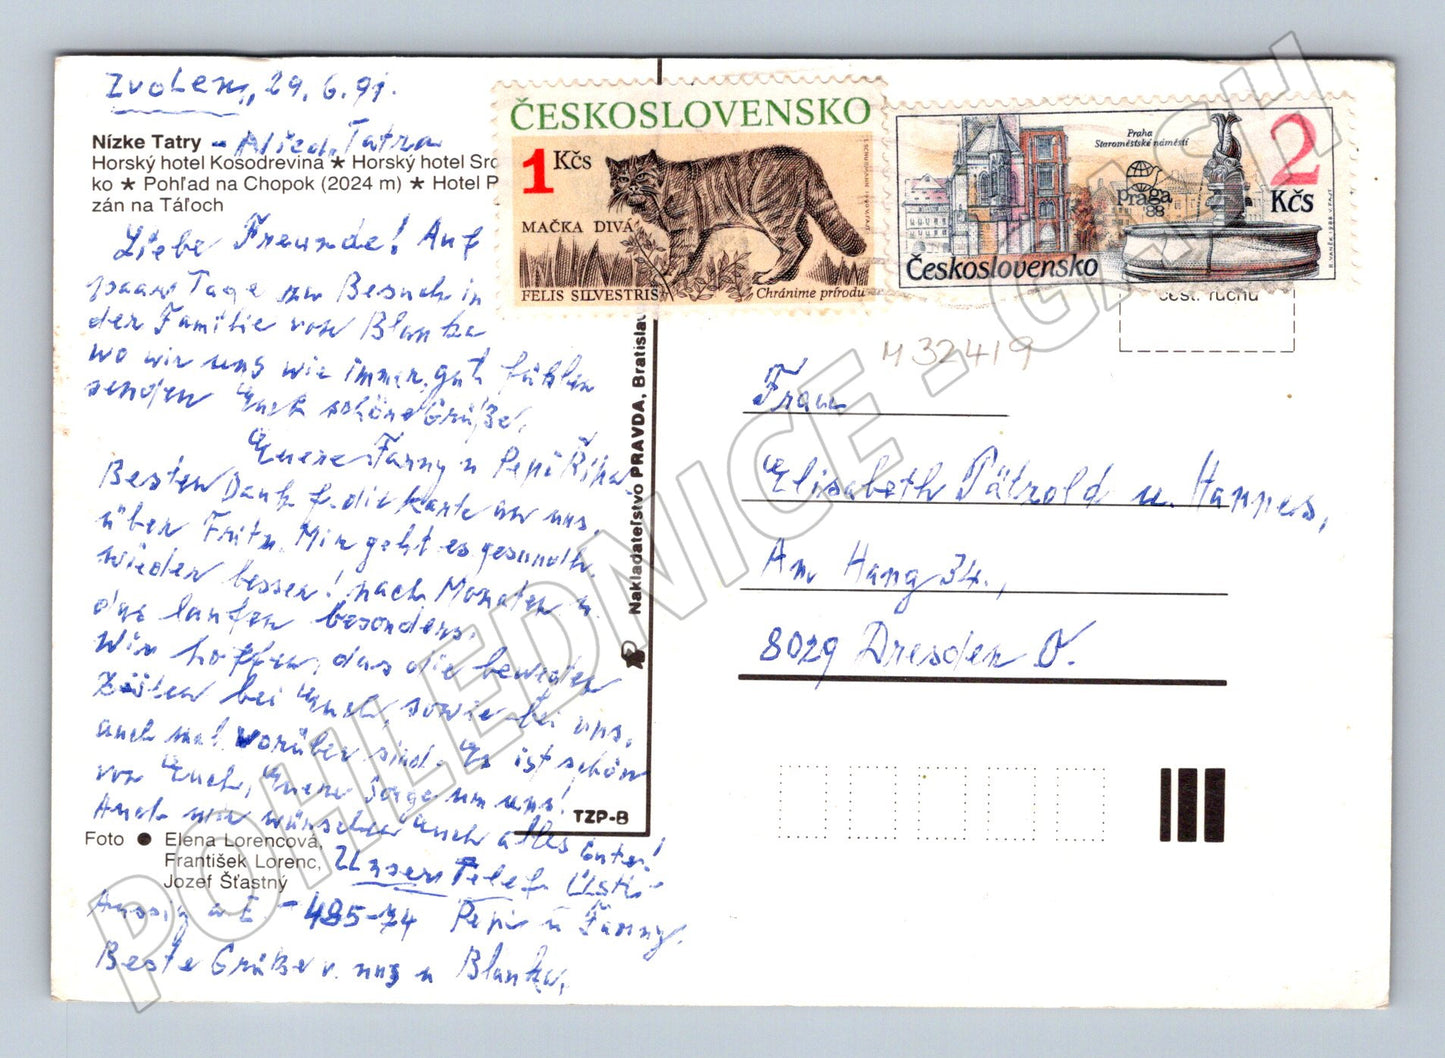 Zvolen, 29.6.91.
Nízke Tatry - Nied. Tatra
Horský hotel Kosodrevina ★ Horský hotel Src
ko ★ Pohľad na Chopok (2024 m) ★ Hotel P
zán na Táľoch
Liebe Freunde! Auf
paar Tage zu Besuch in
der Familie von Blanka
wo wir uns wie immer gut fühlen
senden Euch schöne Grüße.
Euere Fanny u Pepi Říha
Besten Dank f. die Karte an uns,
über Fritz. Mir geht es gesundh.
wieder besser! nach Monaten u.
das laufen besonders.
Wir hoffen, das die
Zeiten bei Euch, sowie bei uns,
auch mal vorüber sind. Es ist schön
von Euch, Euere Sorge um uns!
Auch wir wünschen Euch alles Gute!
Unser Telef. Ústí
Aussig a E - 485-74 Pepi u Fanny.
Beste Grüße v. uns u Blanka.
Foto ● Elena Lorencová,
František Lorenc,
Jozef Šťastný
Nakladateľstvo PRAVDA, Bratislav
TZP-B
ČESKOSLOVENSKO
1 Kčs
MAČKA DIVÁ
FELIS SILVESTRIS
Chráníme prírodu
Praha
Staroměstské náměstí
praga
'88
2
Kčs
Československo
čest. ruchu
M 32419
Frau
Elisabeth Pätzold u. Hannes,
Am Hang 34.,
8029 Dresden O.
POHLEDNICE - GASH